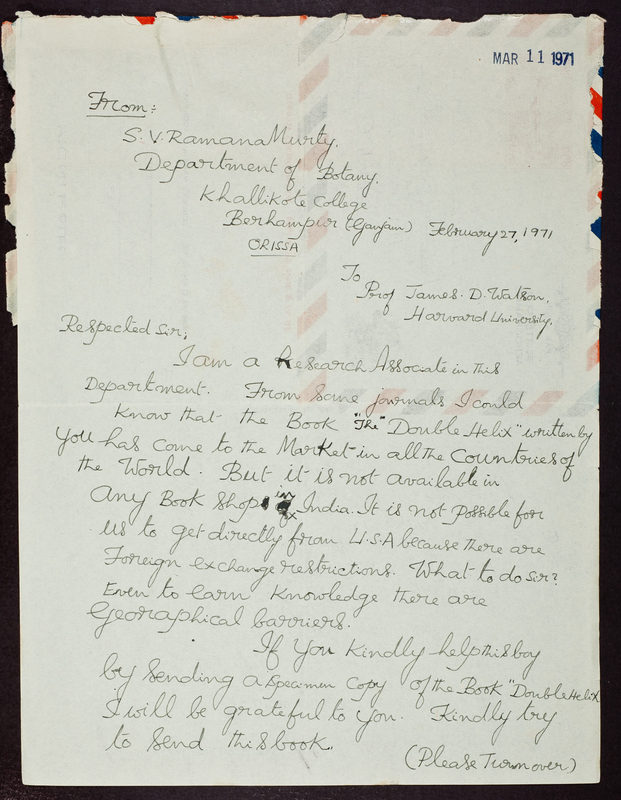 MAR 11 1971
From:
S. V. Ramana Murty.
Department of Botany.
Khallikote College
Berhampur (Ganjam) February 27, 1971
ORISSA
To
Prof James. D. Watson,
Harvard University.
Respected Sir;
I am a Research Associate in this
Department. From some journals I could
know that the Book "The "Double Helix" written by
you has come to the Market in all the Countries of
the World. But it is not available in
any Book Shops in India. It is not Possible for
us to get directly from U.S.A because there are
Foreign exchange restrictions. What to do sir?
Even to earn knowledge there are
Geographical barriers.
If You Kindly help this boy
by sending a specimen copy of the Book "Double Helix
I will be grateful to you. Kindly try
to send this book.
(Please Turn over)